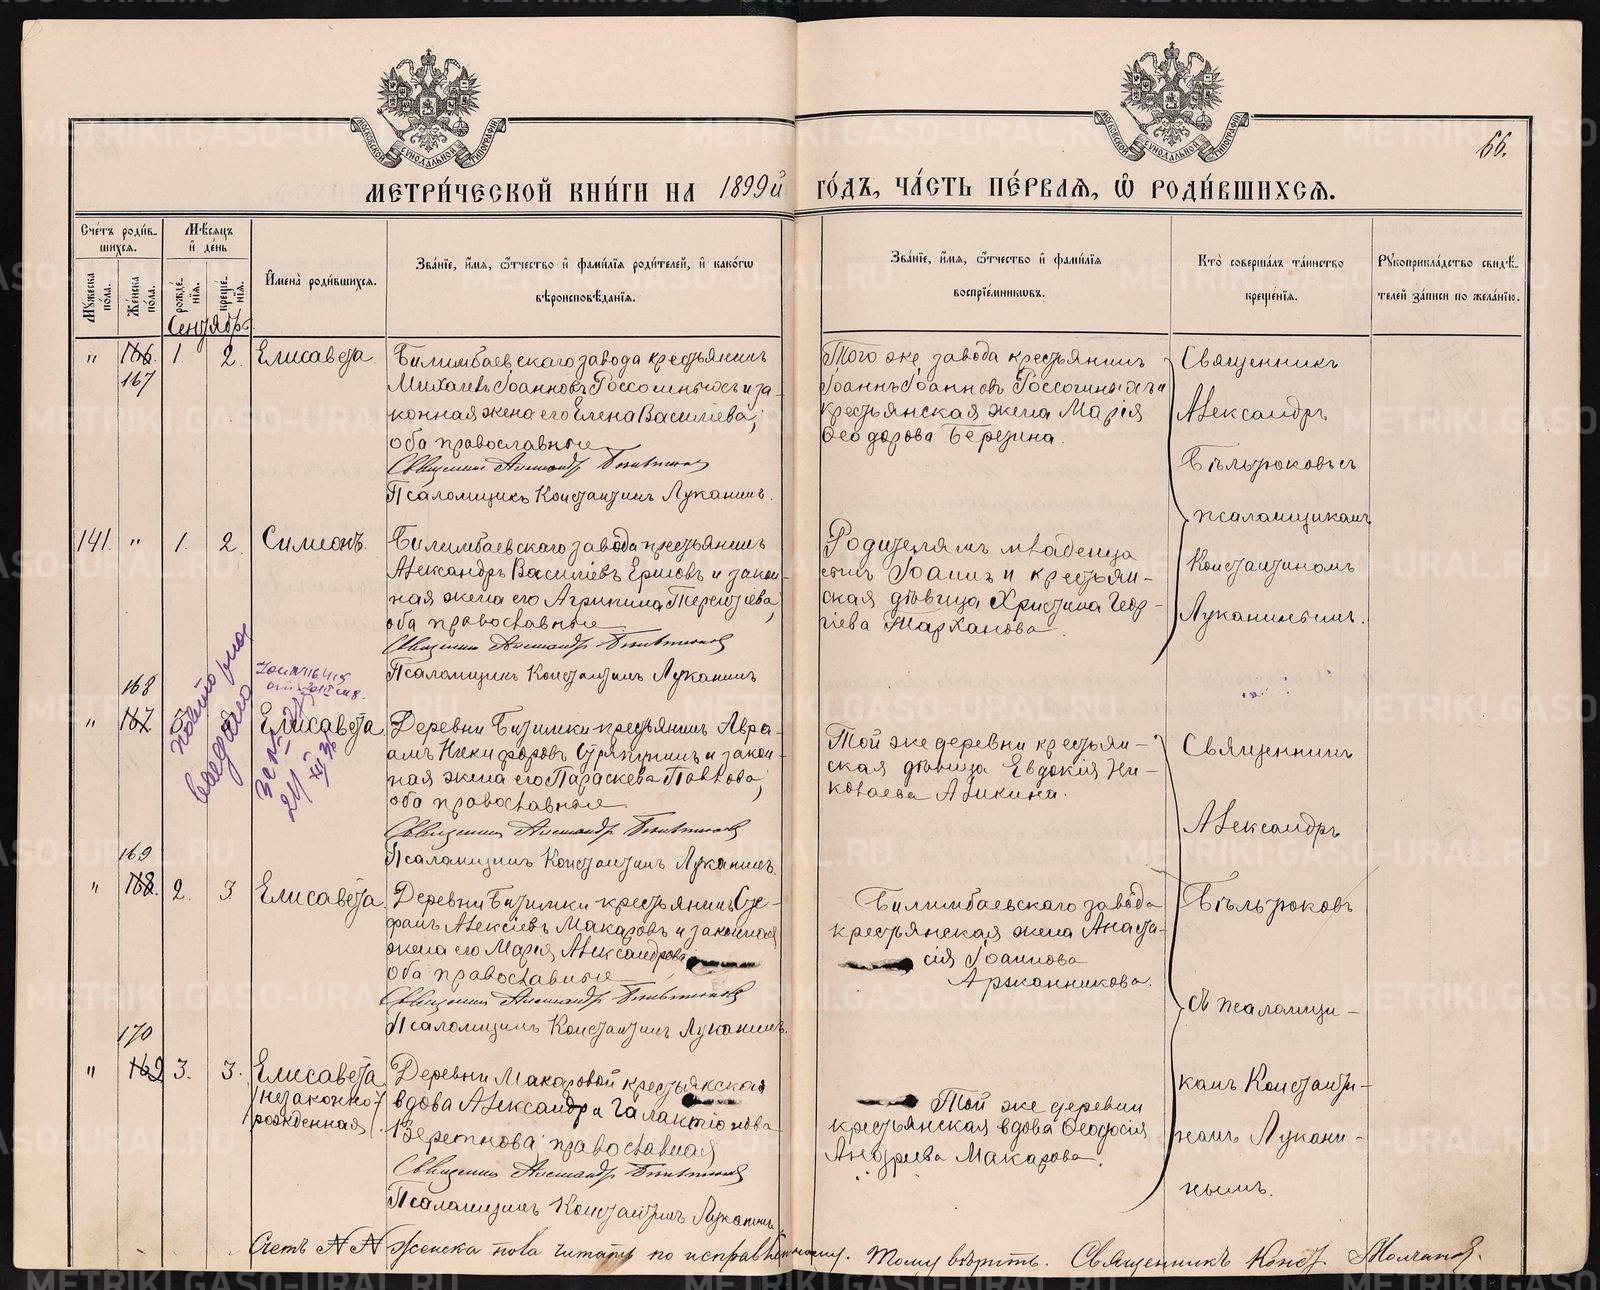 МЕТРИ́ЧЕСКОЙ КНИ́ГИ НА 1899й ГО́ДЪ, ЧА́СТЬ ПЕ́РВАѦ, Ѿ РОДИ́ВШИХСѦ.
66.
Сче́тъ роди́в-
шихсѧ.
Мѣ́сѧцъ
и҆ де́нь
Му́жеска
по́ла.
Же́нска
по́ла.
рожде́-
нїѧ.
креще́-
нїѧ.
И҆мена̀ роди́вшихсѧ.
Зва́нїе, и҆́мѧ, ѻ҆́тчество и҆ фами́лїѧ роди́телей, и҆ како́гѡ
вѣроисповѣ́данїѧ.
Зва́нїе, и҆́мѧ, ѻ҆́тчество и҆ фами́лїѧ
воспрїе́мникѡвъ.
Кто̀ соверша́лъ та́инство
креще́нїѧ.
Рꙋкоприкла́дство свидѣ́-
телей за́писи по жела́нїю.
Сентябрь
" 166. 1. 2. Елисавета.
167
Билимбаевскаго завода крестьянинъ
Михаилъ Іоанновъ Россомныхъ и за-
конная жена его Елена Василіева,
оба православные
Священникъ Александръ
Псаломщикъ Константинъ Луканинъ.
Того же завода крестьянинъ
Іоаннъ Іоанновъ и
крестьянская жена Марія
Ѳеодорова Березина.
Священникъ
Александръ
Бѣльтюковъ съ
псаломщикомъ
Константиномъ
Луканинымъ.
141. " 1. 2. Симеонъ.
Билимбаевскаго завода крестьянинъ
Александръ Василіевъ Ершовъ и закон-
ная жена его Агрипина Терентіева,
оба православные
Священникъ Александръ
Псаломщикъ Константинъ Луканинъ
Родителямъ младенца
сынъ Іоаннъ и крестьян-
ская дѣвица Христина Геор-
гіева
168
" 167 Елисавета
повторно
выдано
Деревни Битимки крестьянинъ Авра-
амъ Никифоровъ Стряпунинъ и закон-
ная жена его Параскева Павлова,
оба православные
Священникъ Александръ
Псаломщикъ Константинъ Луканинъ.
Той же деревни крестьян-
ская дѣвица Евдокія Ни-
колаева Аликина.
Священникъ
Александръ
Бѣльтюковъ
съ псаломщи-
комъ Константи-
номъ Лукани-
нымъ.
169
" 168. 2. 3 Елисавета.
Деревни Битимки крестьянинъ Сте-
фанъ Алексіевъ Макаровъ и законная
жена его Марія Александрова
оба православные
Священникъ Александръ
Псаломщикъ Константинъ Луканинъ.
Билимбаевскаго завода
крестьянская жена Анаста-
сія Іоаннова
Аржанникова.
170
" 169 3. 3. Елисавета
/незаконно-/
рожденная/.
Деревни Макаровой крестьянская
вдова Александра Галактіонова
православная
Священникъ Александръ
Псаломщикъ Константинъ Луканинъ
Той же деревни
крестьянская вдова Ѳеодосія
Андреева Макарова.
Счетъ №№ женска пола читать по исправленному. Тому вѣрить. Священникъ Конст. Молчановъ.